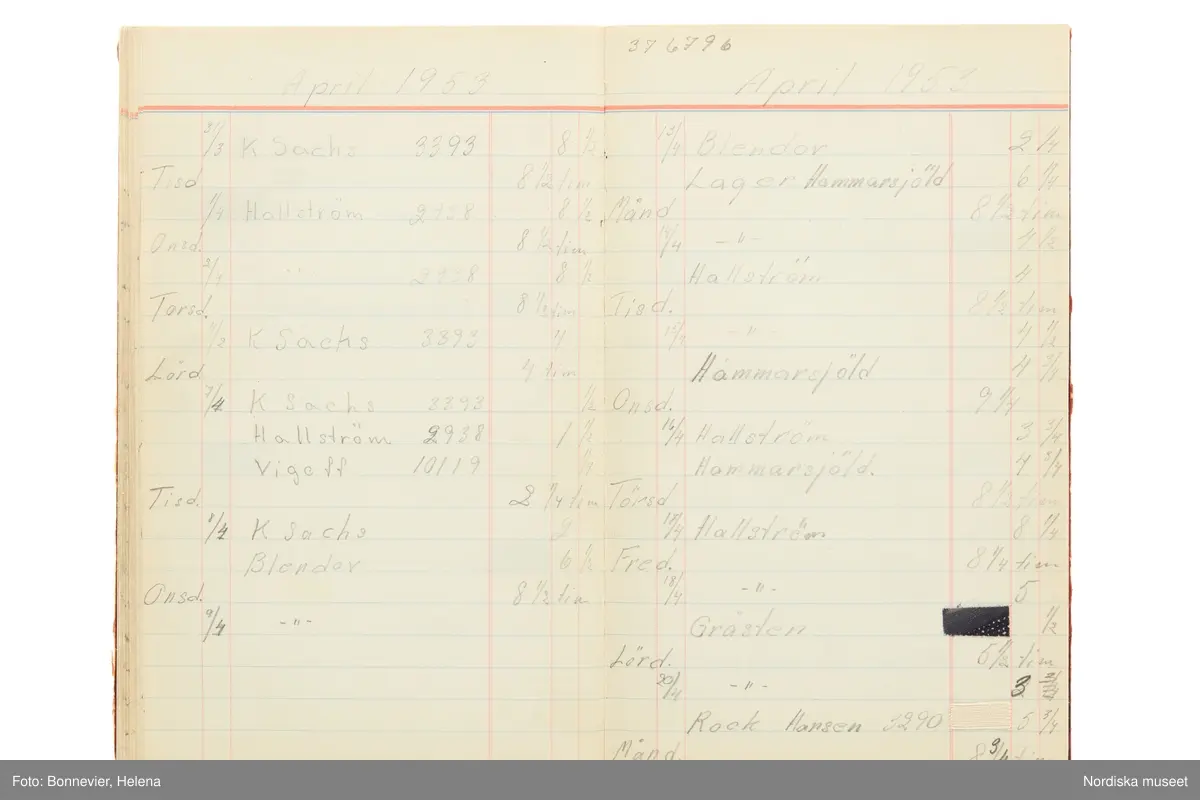 April 1953
31/3 K Sachs 3393 8 1/2
Tisd 8 1/2 tim
1/4 Hallström 2938 8 1/2
Onsd. 8 1/2 tim
2/4 " 2938 8 1/2
Torsd. 8 1/2 tim
K Sachs 3393 4
Lörd 4 tim
7/4 K Sachs 3393 1/2
Hallström 2938 1 1/2
Vigeff 10119
Tisd. 2 1/4 tim
K Sachs 2
Blendor 6 1/2
Onsd. 8 1/2 tim
9/4 -"-
376796
April 1953
13/4 Blendor 2 1/4
Lager Hammarsjöld 6 1/4
Månd 8 1/2 tim
-"- 4 1/2
Hallström 4
Tisd. 8 1/2 tim
-"- 4 1/2
Hammarsjöld 4 3/4
Onsd. 9 1/4
16/4 Hallström 3 3/4
Hammarsjöld. 4 3/4
Torsd 8 1/2 tim
Hallström 8 1/4
Fred. 8 1/4 tim
18/4 -"- 5
Gråsten 1/2
Lörd. 5 1/2 tim
20/4 -"- 3
Rock Hansen 3290 5 3/4
Månd. 8 3/4 tim
Foto: Bonnevier, Helena
Nordiska museet